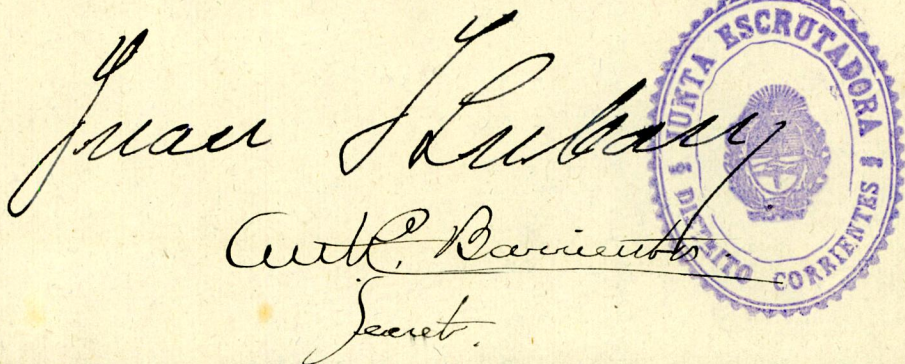 Juan J Lubary
Antº C. Barrientos.
Secret.
JUNTA ESCRUTADORA
DISTRITO CORRIENTES